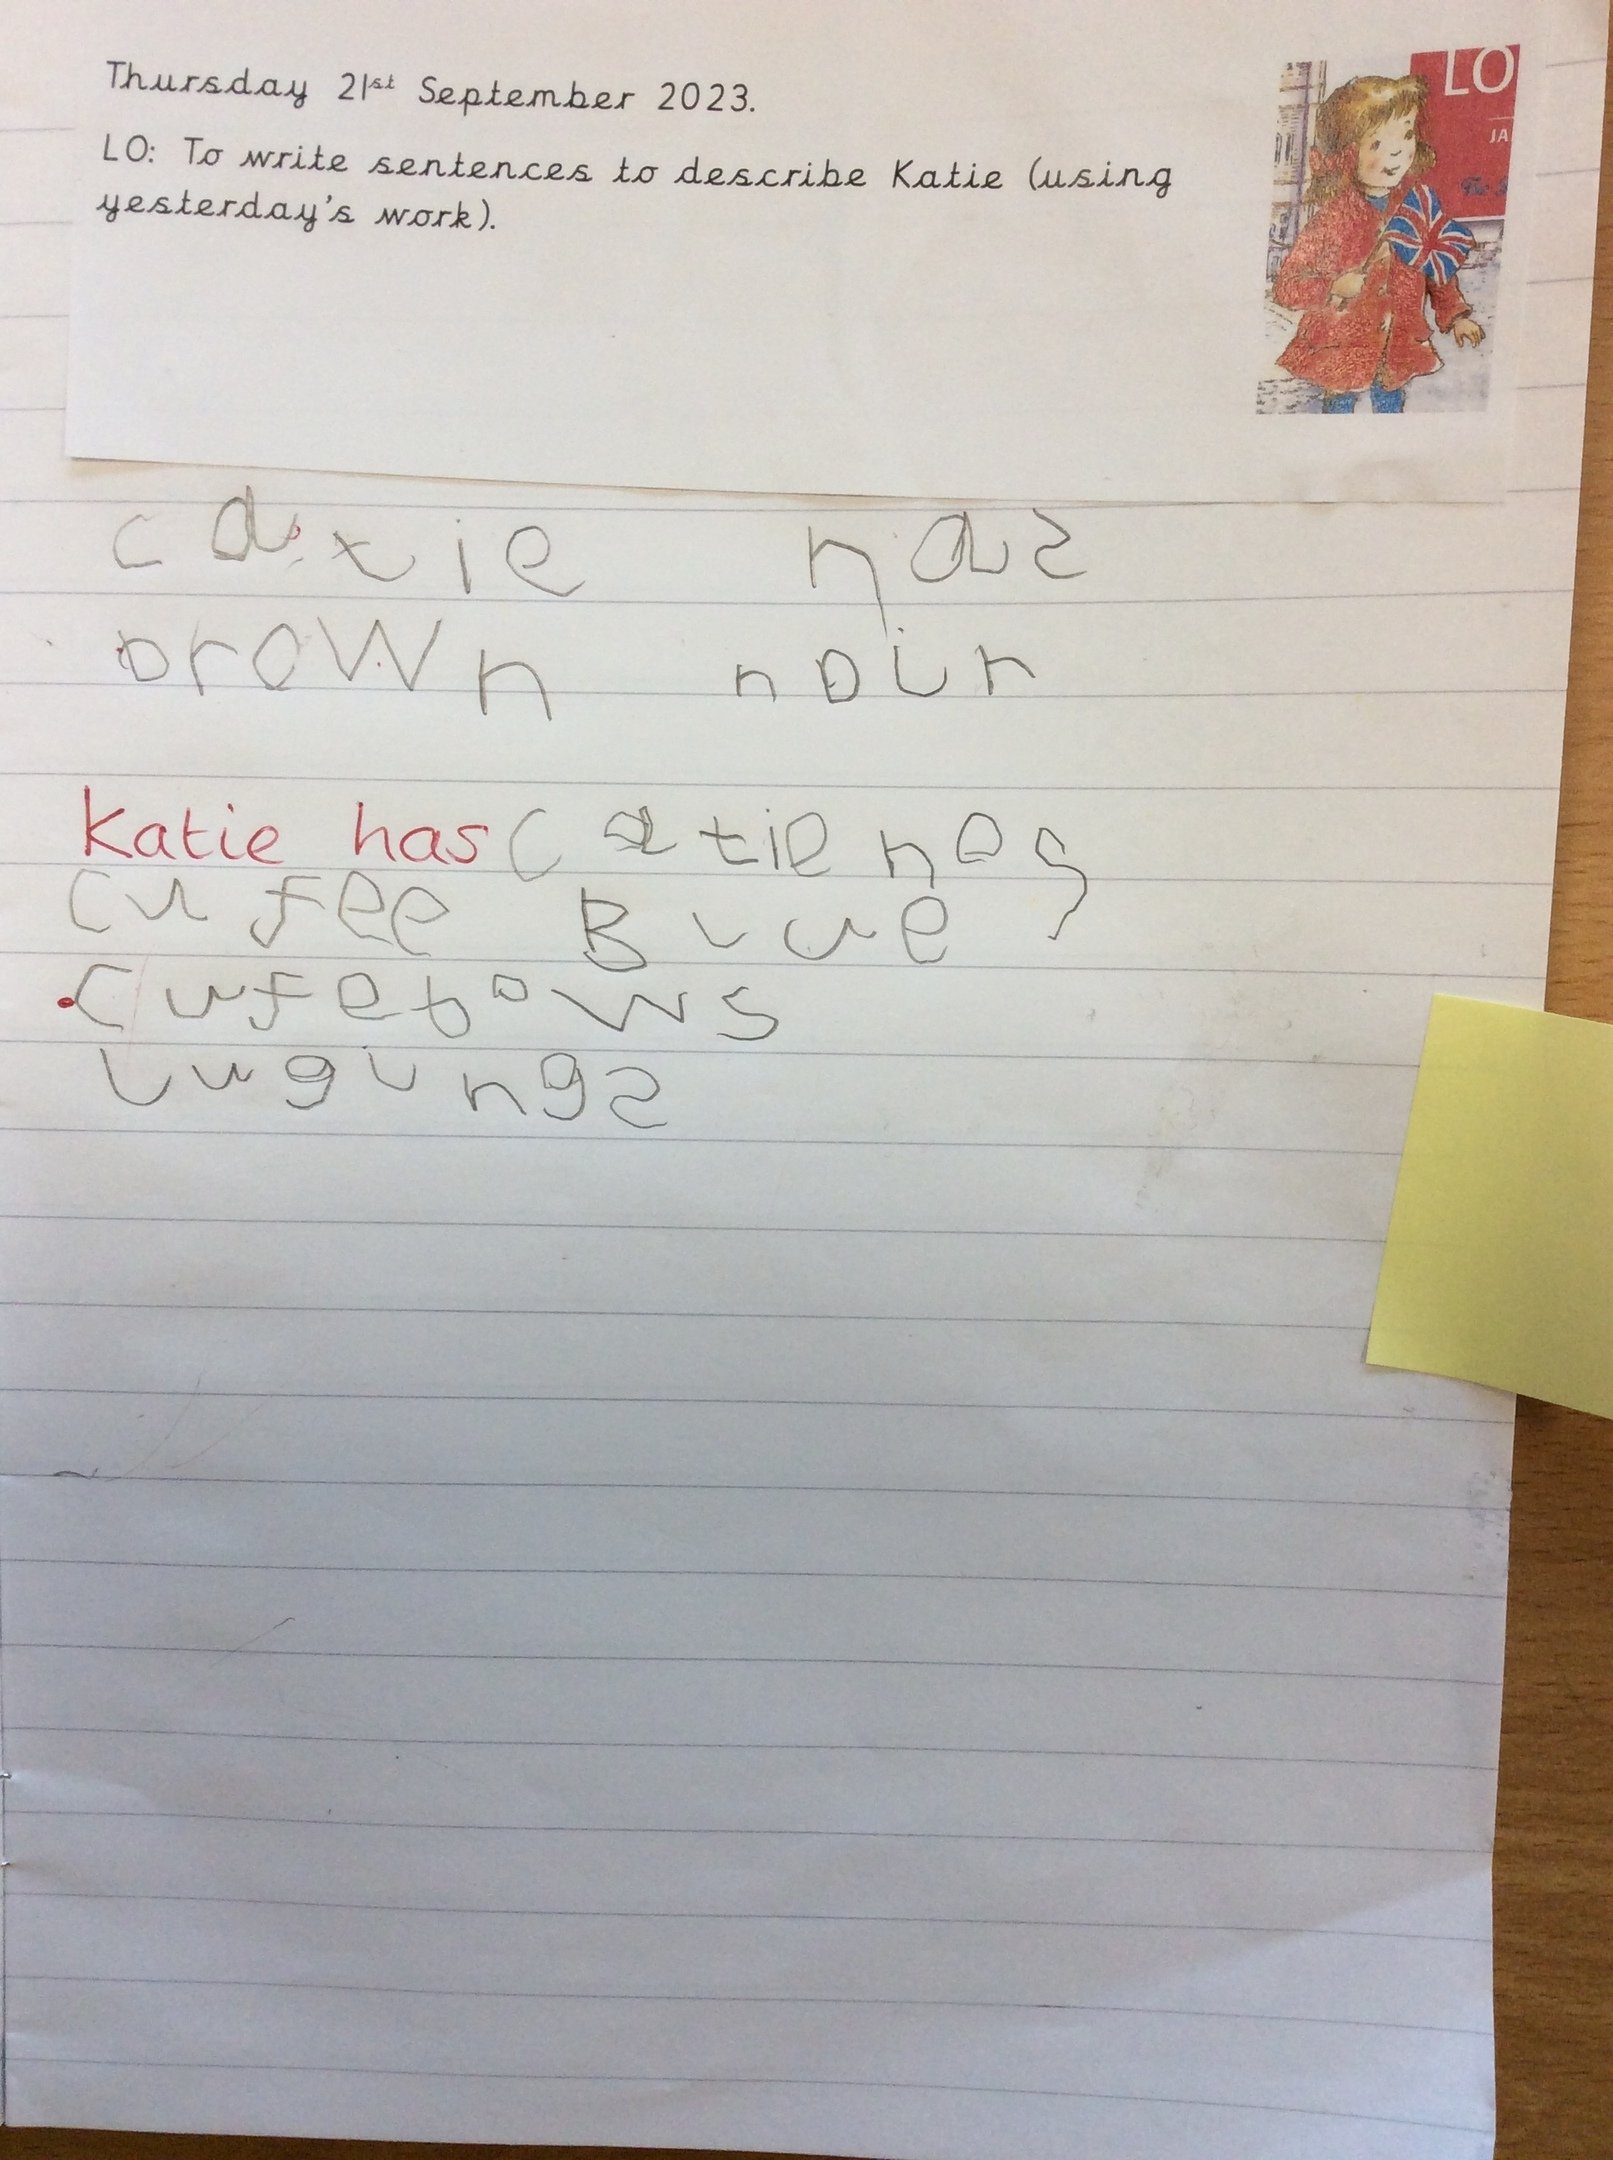 Thursday 21st September 2023.
LO: To write sentences to describe Katie (using
yesterday's work).
LO
JA
catie has
brown hair
Katie has Catie has
Cufee Blue
Cufebows
Lugings